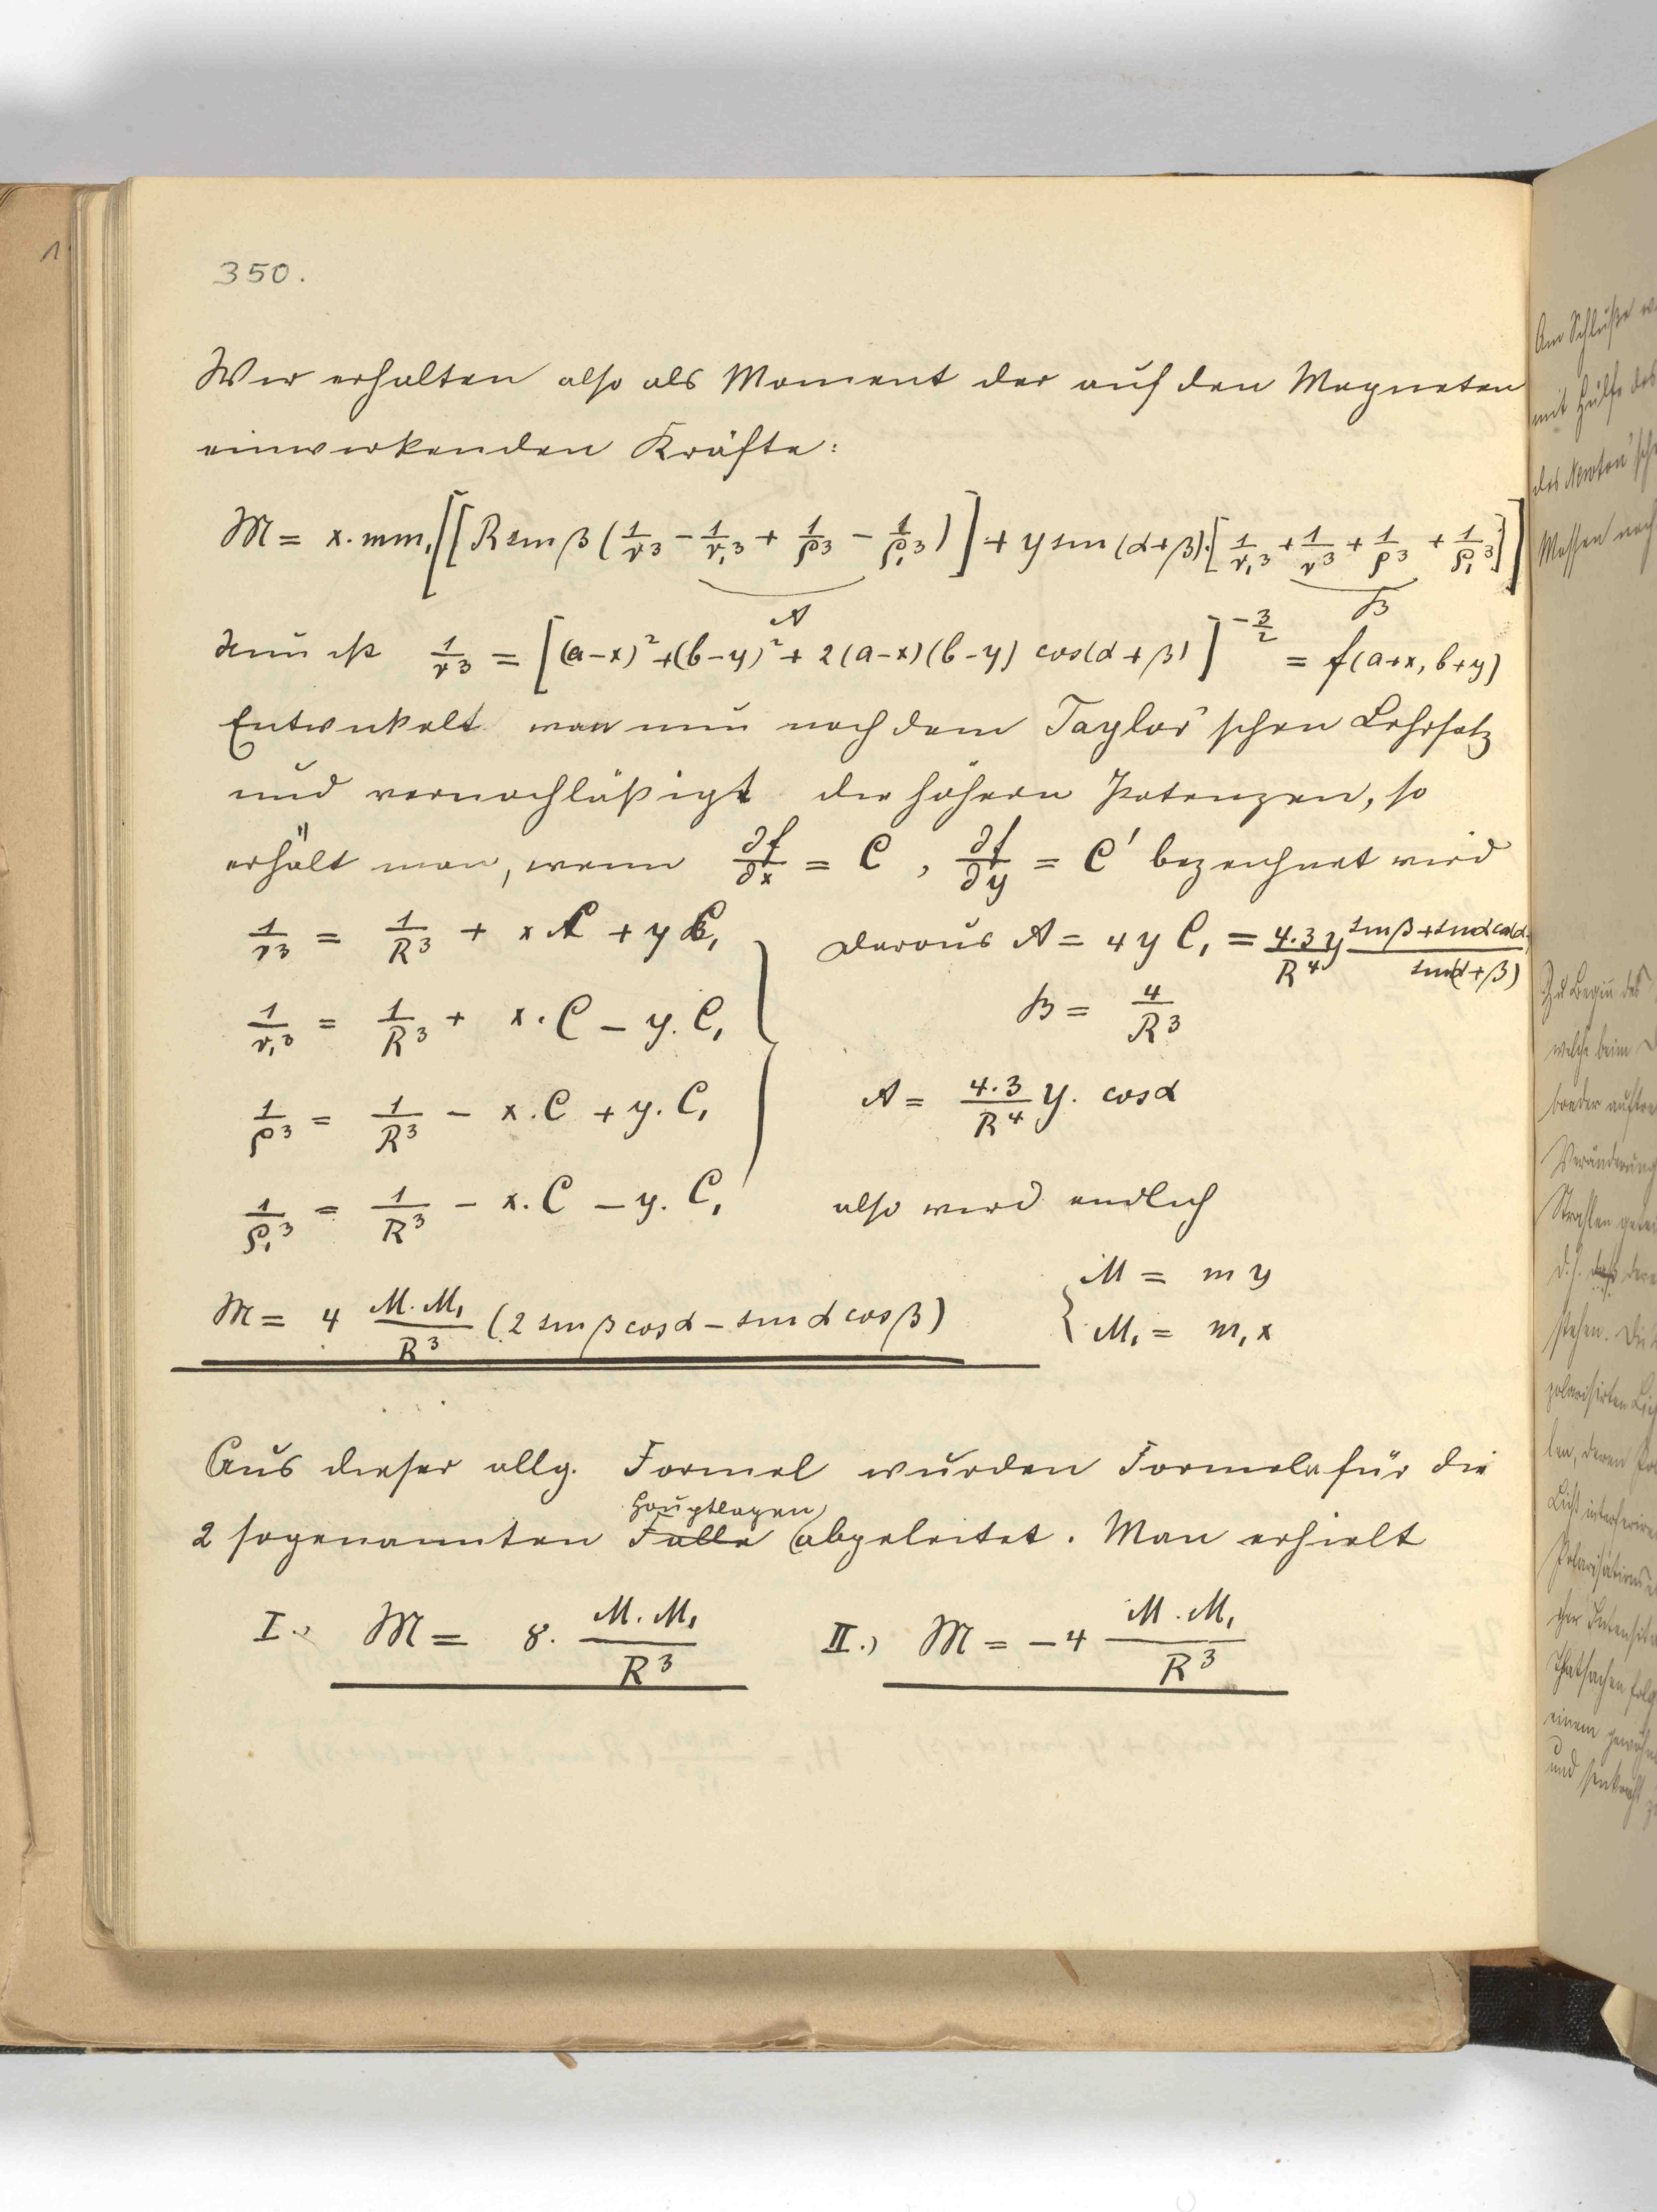 350.
Wir erhalten also als Moment der auf den Magneten
einwirkenden Kräfte:
M = x. m m₁ [[R sin β (1/r³ − 1/r₁³ + 1/ρ³ − 1/ρ₁³)] + y sin (α+β). [1/r₁³ + 1/r³ + 1/ρ³ + 1/ρ₁³]]
A B
Nun ist 1/r³ = [(a−x)² + (b−y)² + 2(a−x)(b−y) cos(α+β)]^(−3/2) = f(a+x, b+y)
Entwickelt man nun nach dem Taylor'schen Lehrsatz
und vernachläßigt die höhern Potenzen, so
erhält man, wenn ∂f/∂x = C, ∂f/∂y = C' bezeichnet wird
1/r³ = 1/R³ + x C + y C₁ daraus A = 4 y C₁ = 4.3/R⁴ y (sin β + sin α cos(α
sin(α+β)
1/r₁³ = 1/R³ + x. C − y. C₁ B = 4/R³
1/ρ³ = 1/R³ − x. C + y. C₁ A = 4.3/R⁴ y. cos α
1/ρ₁³ = 1/R³ − x. C − y. C₁ also wird endlich
M = 4 M. M₁/R³ (2 sin β cos α − sin α cos β) { M = m y
M₁ = m₁ x
Aus dieser allg. Formel wurden Formeln für die
Hauptlagen
2 sogenannten Fälle abgeleitet. Man erhielt
I.) M = 8. M. M₁/R³ II.) M = −4 M. M₁/R³
1
Am Schluße
mit Hülfe des
des Newton'sch
Massen nach
Zu Beginn des
welche beim
Veränderung
Strahlen
d.h. daß
stehen. Die
polarisirten
len, deren
Licht
Polarisations
Thatsachen
einem
und senkrecht